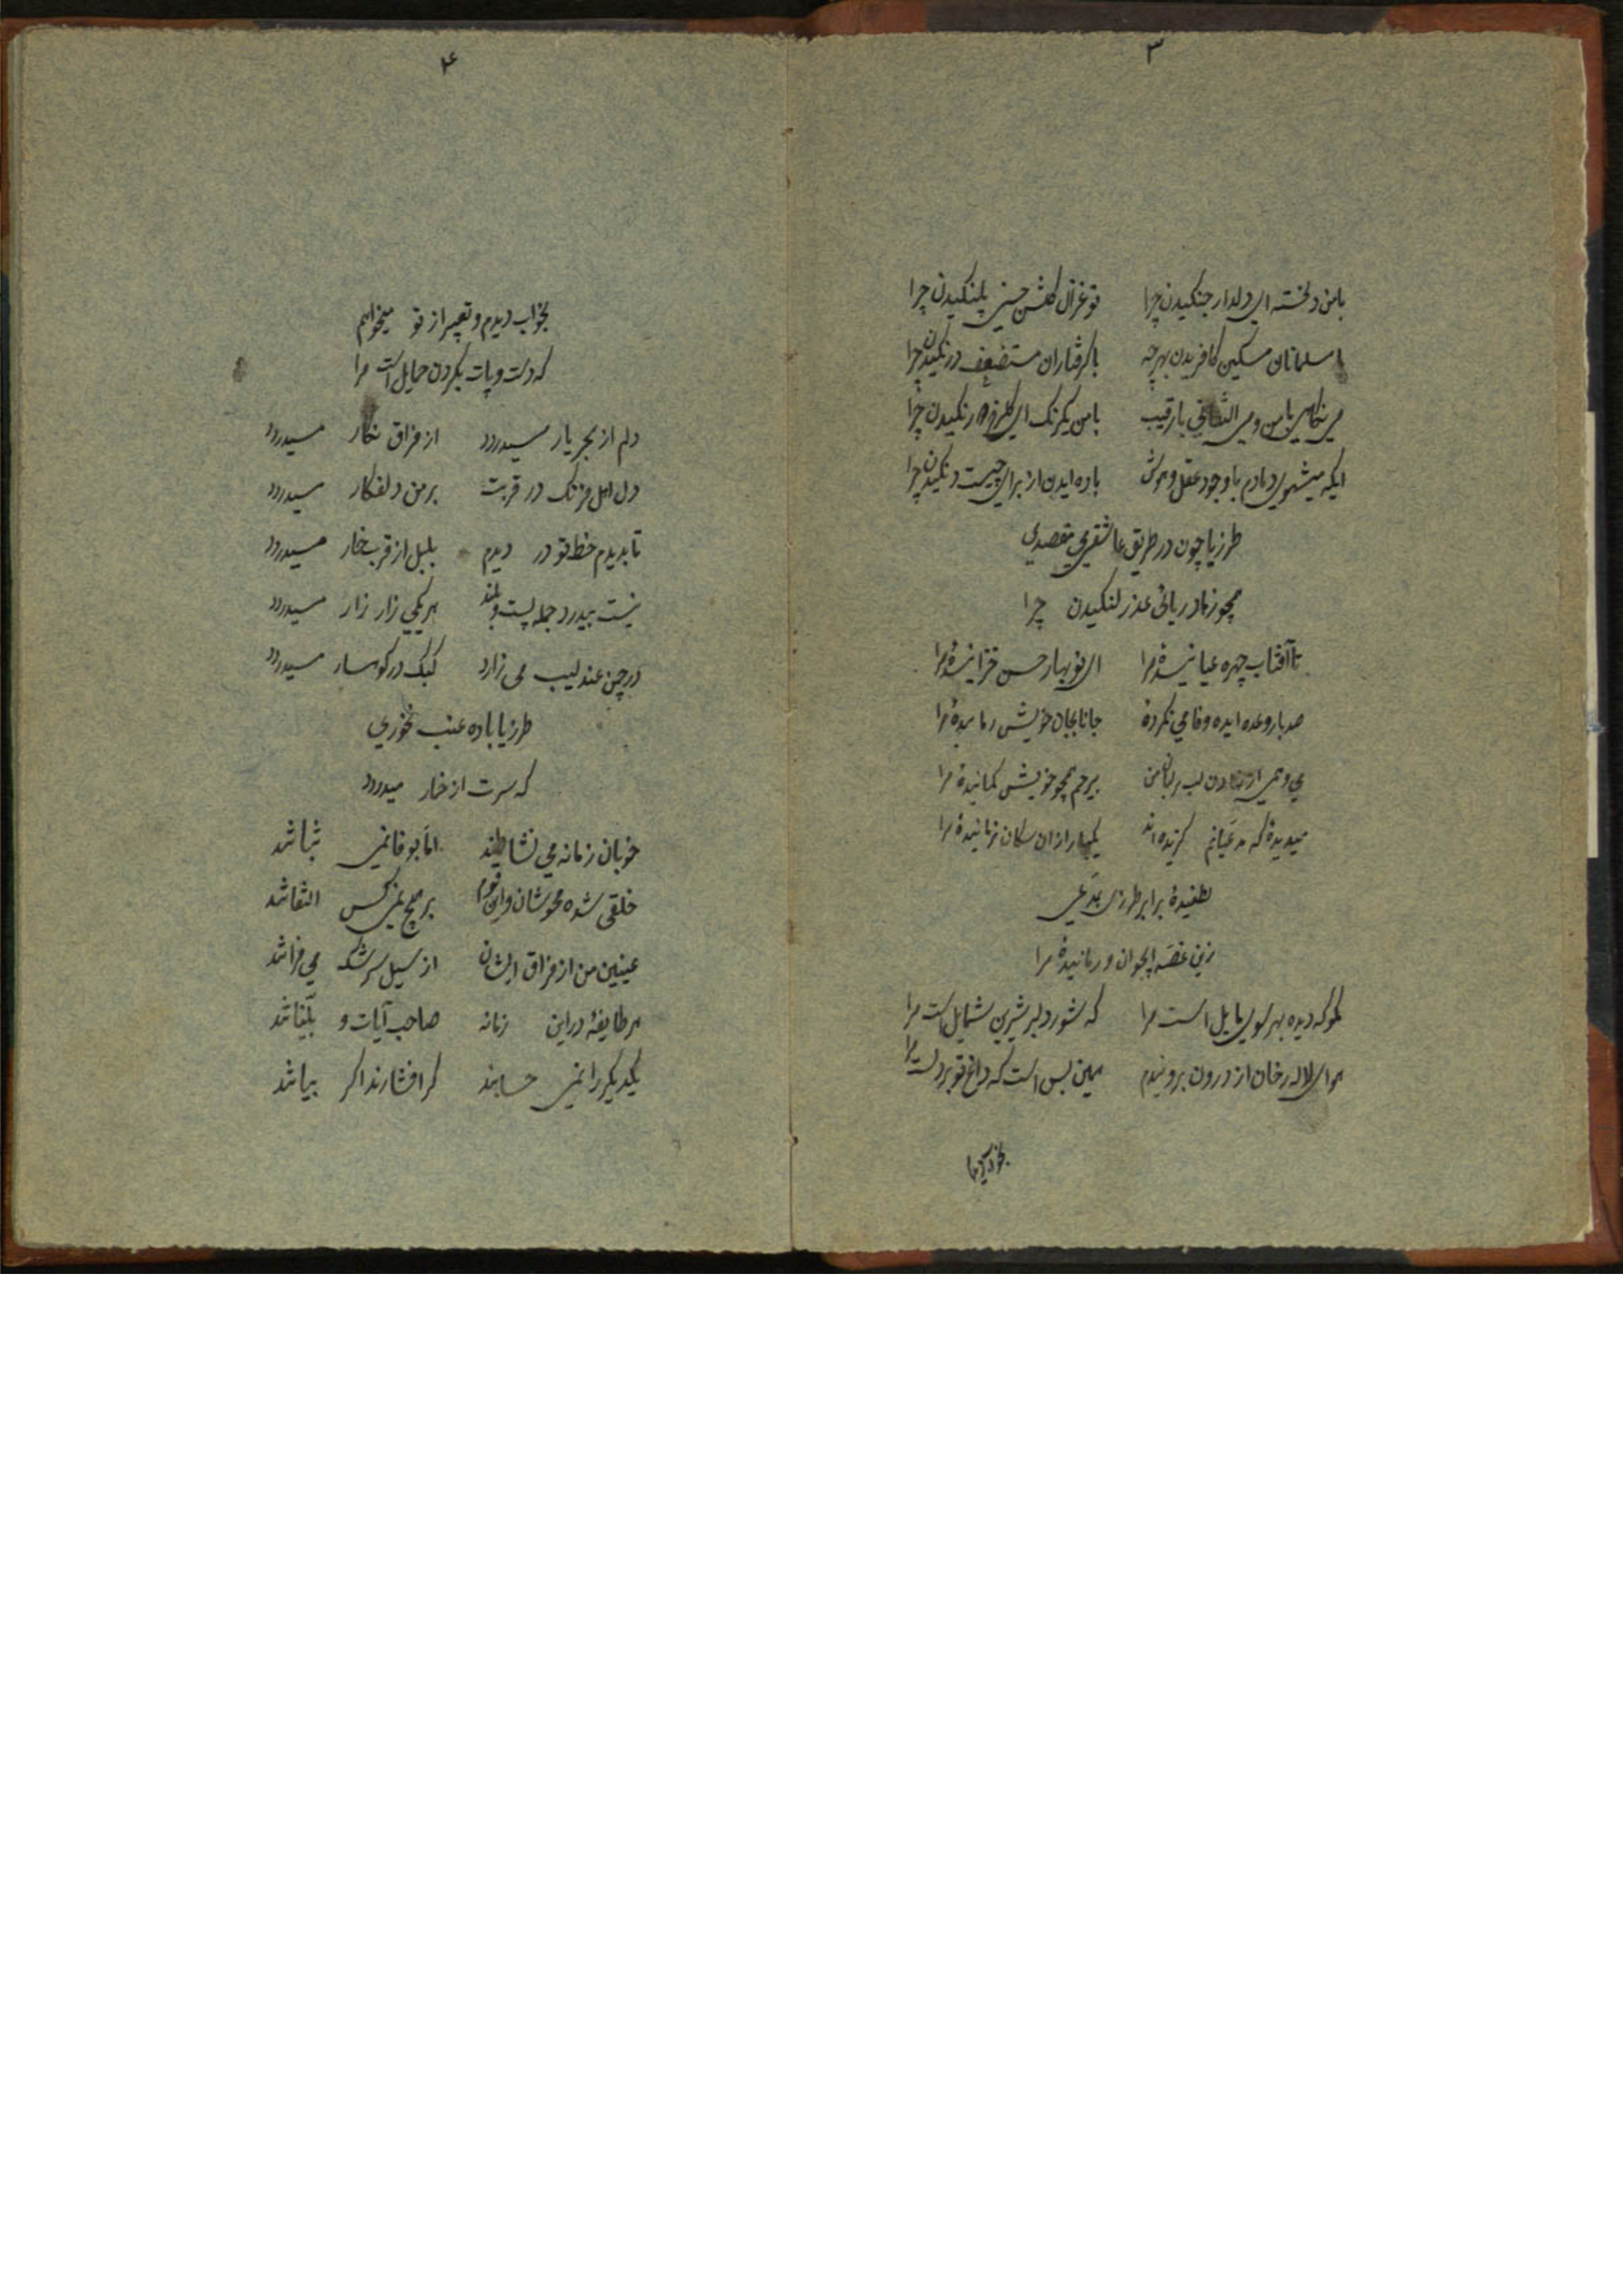 ۳
با من دلخسته ای دلدار جنگیدن چرا تو غزال گلشن حسنی پلنگیدن چرا
با مسلمانان مسکین کافریدن بهر چه با گرفتاران مستضعف درنگیدن چرا
می نگاهی با من و می التفاتی با رقیب با من یکرنگ ای گلرخ دورنگیدن چرا
ایکه میشهدی دمادم با وجود عقل و هوش باده ایدن از برای چیست دنگیدن چرا
طرزیا چون در طریق عاشقی می مقصدی
همچو زهاد ریائی عذر لنگیدن چرا
تا آفتاب چهره عیانیدهٔ مرا ای نوبهار حسن خزانیدهٔ مرا
صد بار وعده ایده وفا می نکردهٔ جانا بجان خویش
لب بر لبان من بیرحم همچو خویش گمانیدهٔ مرا
میدیدهٔ که مدعیانم گزیده اند یکبار از ان سگان نرهانیدهٔ مرا
لطفیدهٔ برابر طرزی بمدعی
زین غصه ایجوان و رمانیدهٔ مرا
مگو که دیده بهر سوی مایل است مرا که شور دلبر شیرین شمایل است مرا
هوای لاله رخان از درون برونیدم همین بس است که داغ تو بر دل است مرا
بخواب دیدم
۴
بخواب دیدم و تعبیر از تو میخواهم
که دست و پات بگردن حمایل است مرا
دلم از هجر یار میدردد از فراق نگار میدردد
دل اهل فرنگ در قربت بر من دلفکار میدردد
تا بدیدم خط تو در دیدم بلبل از قرب خار میدردد
نیست بیدرد جمله پست و بلند هر یکی زار زار میدردد
در چمن عندلیب می زارد کبک در کوهسار میدردد
طرزیا باده عنب نخوری
که سرت از خمار میدردد
خوبان زمانه می نشاطند اما بوفا نمی ثباتند
خلقی شده محوشان و این قوم بر هیچ نمیکس التفاتند
عینین من از فراق ایشان از سیل سرشک می فراتند
هر طایفهٔ در این زمانه صاحب آیات و بلیناتند
یکدیگر را نمی حسابند گر افشارند اگر بیاتند